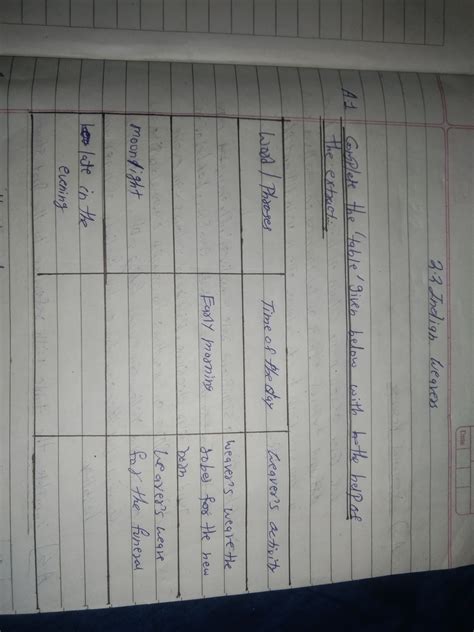 2.3 Indian Weavers
A1 Complete the 'table' given below with the help of
the extract:
Word / Phrases Time of the day Weaver's activity
Early morning weaver's weave the
robes for the new
born
moonlight weaver's weave
for the funeral
late in the
evening
Date